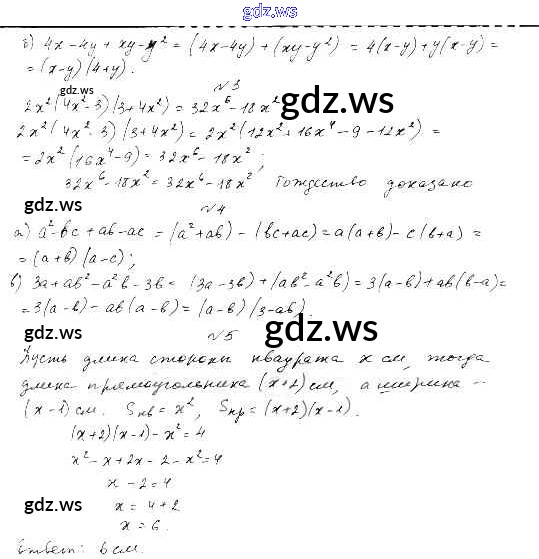 gdz.ws
б) 4x - 4y + xy - y² = (4x - 4y) + (xy - y²) = 4(x-y) + y(x-y) =
= (x-y)(4+y).
gdz.ws
№3
2x²(4x²-3)(3+4x²) = 32x⁶ - 18x²
gdz.ws
2x²(4x²-3)(3+4x²) = 2x²(12x² + 16x⁴ - 9 - 12x²) =
= 2x²(16x⁴-9) = 32x⁶ - 18x²;
32x⁶ - 18x² = 32x⁶ - 18x² Тождество доказано
gdz.ws
№4
а) a² - bc + ab - ac = (a² + ab) - (bc + ac) = a(a+b) - c(b+a) =
= (a+b)(a-c);
в) 3a + ab² - a²b - 3b = (3a - 3b) + (ab² - a²b) = 3(a-b) + ab(b-a) =
= 3(a-b) - ab(a-b) = (a-b)(3-ab).
gdz.ws
№5
gdz.ws
Пусть длина стороны квадрата x см, тогда
длина прямоугольника (x+2) см, а ширина -
(x-1) см. Sкв = x², Sпр = (x+2)(x-1).
gdz.ws
(x+2)(x-1) - x² = 4
x² - x + 2x - 2 - x² = 4
x - 2 = 4
gdz.ws
x = 4+2
gdz.ws
x = 6.
Ответ: 6 см.